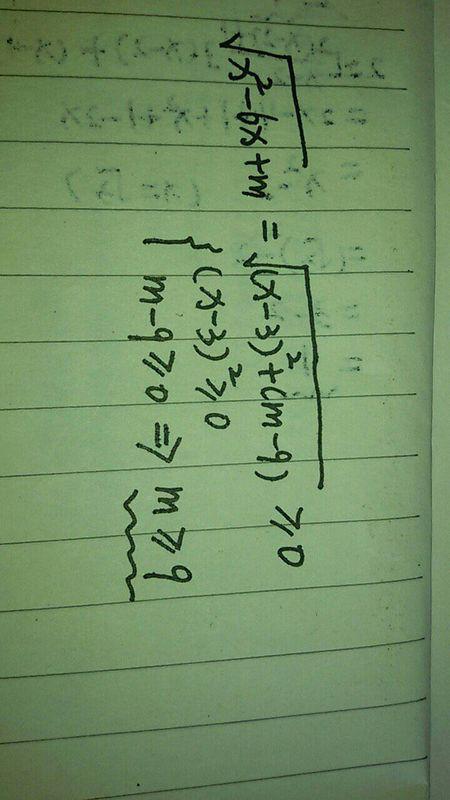 √(x²-6x+m) = √((x-3)²+(m-9)) ≥0
{ (x-3)²≥0
m-9≥0 ⇒ m≥9